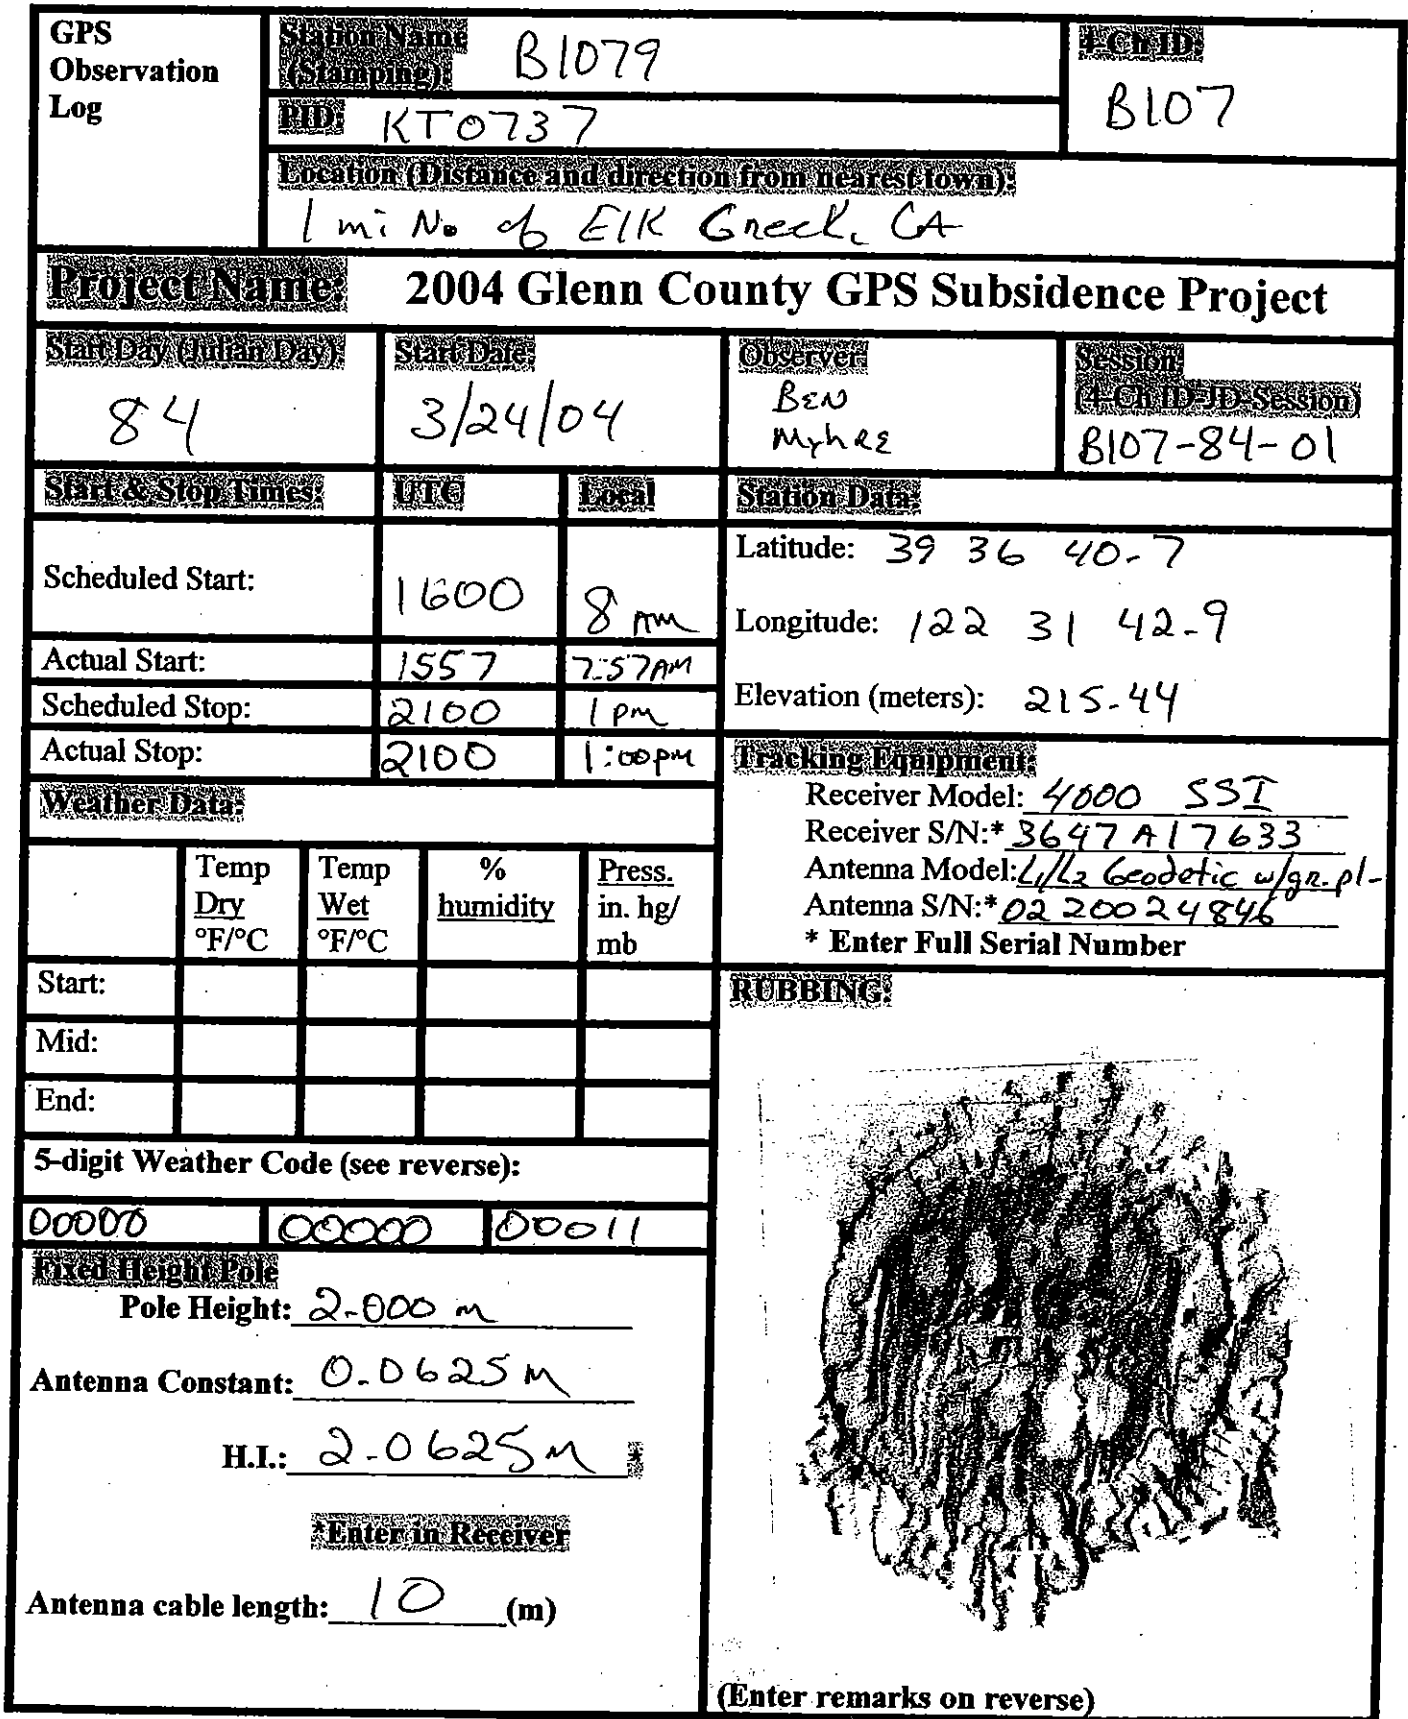 GPS
Observation
Log
Station Name
(Stamping): B1079
4-Ch ID:
B107
PID: KT0737
Location (Distance and direction from nearest town):
1 mi No of Elk Creek, CA
Project Name: 2004 Glenn County GPS Subsidence Project
Start Day (Julian Day):
84
Start Date:
3/24/04
Observer:
BEN
MyhRE
Session:
(4-Ch ID-JD-Session)
B107-84-01
Start & Stop Times: UTC Local
Scheduled Start: 1600 8 AM
Actual Start: 1557 7:57AM
Scheduled Stop: 2100 1 pm
Actual Stop: 2100 1:00pm
Station Data:
Latitude: 39 36 40.7
Longitude: 122 31 42.9
Elevation (meters): 215.44
Tracking Equipment:
Receiver Model: 4000 SSI
Receiver S/N:* 3647A17633
Antenna Model: L1/L2 Geodetic w/gr.pl.
Antenna S/N:* 0220024846
* Enter Full Serial Number
Weather Data:
Temp Dry °F/°C
Temp Wet °F/°C
% humidity
Press. in. hg/ mb
Start:
Mid:
End:
5-digit Weather Code (see reverse):
00000 00000 00011
Fixed Height Pole
Pole Height: 2.000 m
Antenna Constant: 0.0625 m
H.I.: 2.0625 m *
*Enter in Receiver
Antenna cable length: 10 (m)
RUBBING:
(Enter remarks on reverse)